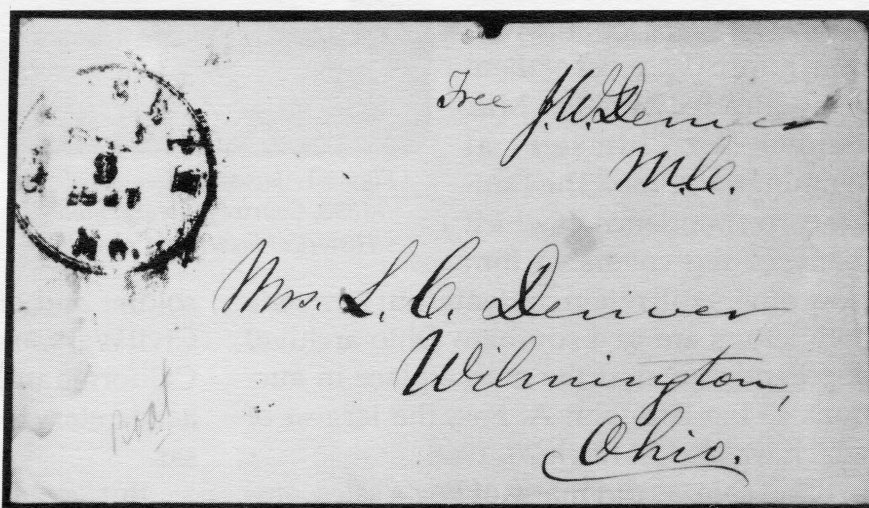 Free J.W. Denver
M.C.
Mrs. L. C. Denver
Wilmington,
Ohio.